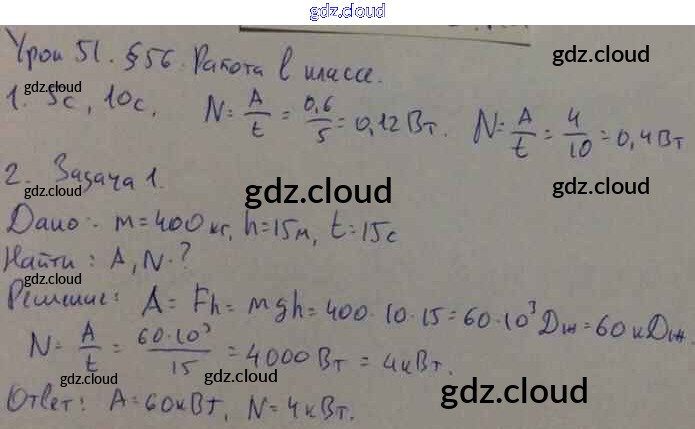 gdz.cloud
Урок 51. §56. Работа в классе.
gdz.cloud
gdz.cloud
1. 5с, 10с. N = A/t = 0,6/5 = 0,12 Вт. N = A/t = 4/10 = 0,4 Вт
gdz.cloud
2. Задача 1.
gdz.cloud
gdz.cloud
gdz.cloud
Дано: m = 400 кг, h = 15 м, t = 15 с
Найти: A, N - ?
gdz.cloud
Решение: A = Fh = mgh = 400 · 10 · 15 = 60 · 10³ Дж = 60 кДж.
gdz.cloud
N = A/t = 60 · 10³/15 = 4000 Вт = 4 кВт.
gdz.cloud
gdz.cloud
gdz.cloud
Ответ: A = 60 кВт, N = 4 кВт.